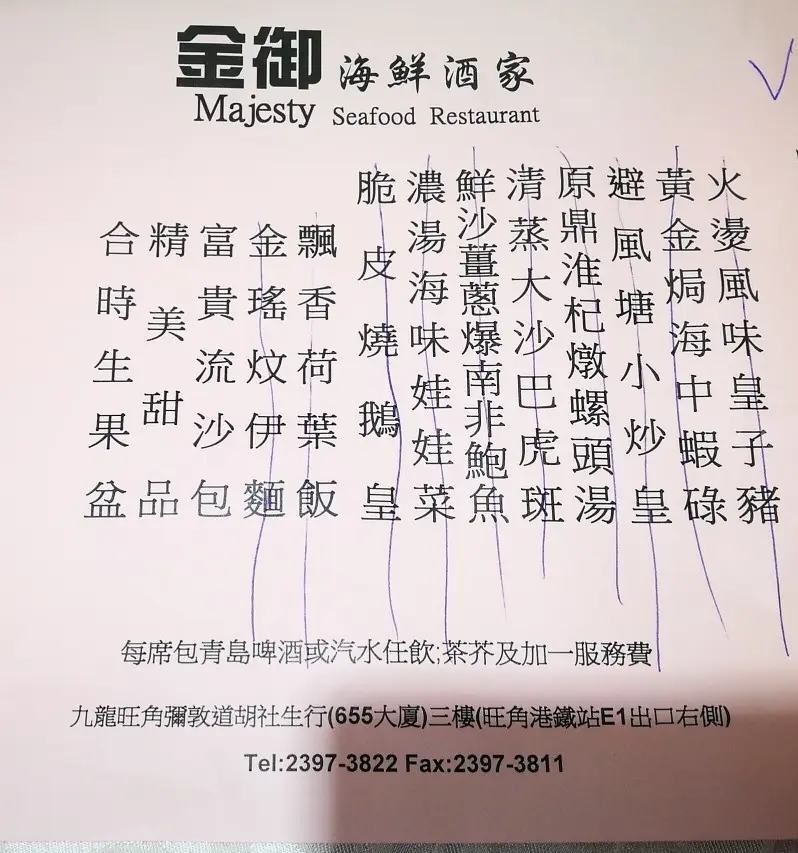 金御海鮮酒家
Majesty Seafood Restaurant
火燙風味皇子豬
黃金焗海中蝦碌
避風塘小炒皇
原鼎淮杞燉螺頭湯
清蒸大沙巴虎斑
鮮沙薑蔥爆南非鮑魚
濃湯海味娃娃菜
脆皮燒鵝皇
飄香荷葉飯
金瑤炆伊麵
富貴流沙包
精美甜品
合時生果盆
每席包青島啤酒或汽水任飲;茶芥及加一服務費
九龍旺角彌敦道胡社生行(655大廈)三樓(旺角港鐵站E1出口右側)
Tel:2397-3822 Fax:2397-3811